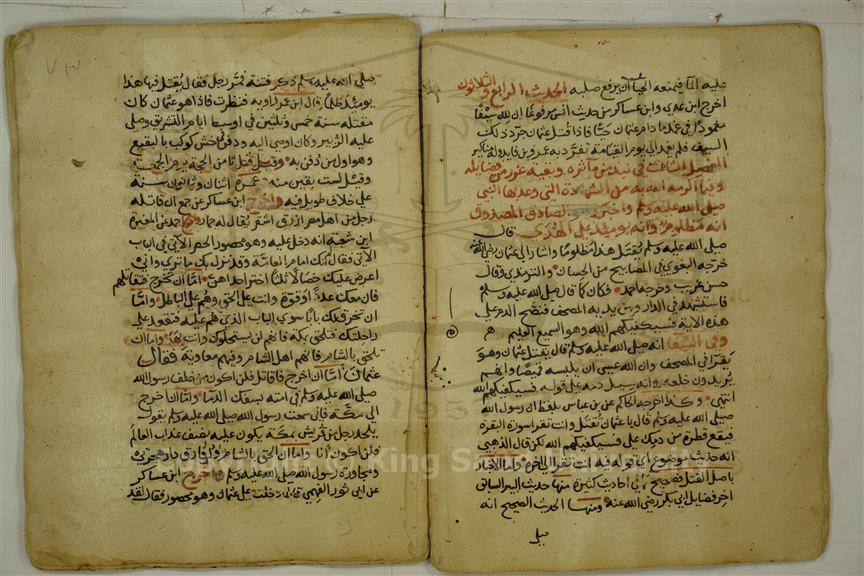 عليه الماء فيمنعه الحياء ان يرفع صلبه الحديث الرابع والثلاثون
اخرج ابن عدي وابن عساكر من حديث انس مرفوعا ان لله سيفا
مغمودا في غمده ما دام عثمان حيا فاذا قتل عثمان جرد ذلك
السيف فلم يغمد الي يوم القيامة تفرد به عمرو بن فايد وله مناكير
الفصل الثالث في نبذ من مآثره وبقية غرر من فضايله
وفيما اكرمه الله به من الشهادة التي وعده بها النبي
صلى الله عليه وسلم واخبر الصادق المصدوق
انه مظلوم وانه يوميذ على الهدى قال
صلى الله عليه وسلم يقتل هذا مظلوما واشار الى عثمان
خرجه البغوي في المصابيح من الحسان والترمذي وقال
حسن غريب وخرجه احمد فكان كما قال صلى الله عليه وسلم
فاستشهد في الدار وبين يديه المصحف فنضح الدم على
هذه الآية فسيكفيكهم الله وهو السميع العليم
وفي الشفا انه صلى الله عليه وسلم قال يقتل عثمان وهو
يقرا في المصحف وان الله عسى ان يلبسه قميصا وانهم
يريدون خلعه وانه يسيل دمه على قوله فسيكفيكهم الله
انتهى وكذا اخرجه الحاكم عن بن عباس بلفظ ان رسول الله
صلى الله عليه وسلم قال يا عثمان تقتل وانت تقرا سورة البقرة
فيقع قطرة من دمك على فسيكفيكهم الله لكن قال الذهبي
انه حديث موضوع اي قوله فيه انت تقرا الى اخره واما الاخبار
باصل القتل فصحيح في احاديث كثيرة منها حديث البير السابق
اخر فضايل ابي بكر رضي الله عنه ومنها الحديث الصحيح انه
صلى
٧٣
صلى الله عليه وسلم ذكر فتنة فمر رجل فقال يقتل فيها هذا
يوميذ ظلما قال ابن عمر راويه فنظرت فاذا هو عثمان كان
مقتله سنة خمس وثلثين في اوسط ايام التشريق وصلى
عليه الزبير وكان اوصى اليه ودفن في حش كوكب بالبقيع
وهو اول من دفن به وقيل قتل ثامن الحجة يوم الجمعة
وقيل لست بقين منه عمره اثنان وثمانون سنة
على خلاف طويل فيه واخرج ابن عساكر عن جمع ان قاتله
رجل من اهل مصر ازرق اشقر يقال له حمار واخرج احمد عن المغيرة
ابن شعبة انه دخل عليه وهو محصور الحصر الآتي في الباب
الآتي فقال انك امام العامة وقد نزل بك ما ترى واني
اعرض عليك خصالا ثلثا اختر احداهن اما ان تخرج فتقاتلهم
فان معك عددا وقوة وانت على الحق وهم على الباطل واما
ان تخرق لك بابا سوى الباب الذي هم عليه فتقعد على
راحلتك فتلحق بمكة فانهم لن يستحلوك وانت بها واما ان
تلحق بالشام فانهم اهل الشام وفيهم معاوية فقال
عثمان اما ان اخرج فاقاتل فلن اكون من خلف رسول الله
صلى الله عليه وسلم في امته بسفك الدما واما ان اخرج
الى مكة فاني سمعت رسول الله صلى الله عليه وسلم يقول
يلحد رجل من قريش بمكة يكون عليه نصف عذاب العالم
فلن اكون انا واما ان الحق بالشام فلن افارق دار هجرتي
ومجاورة رسول الله صلى الله عليه وسلم واخرج ابن عساكر
عن ابي ثور الفهمي قال دخلت على عثمان وهو محصور فقال لقد